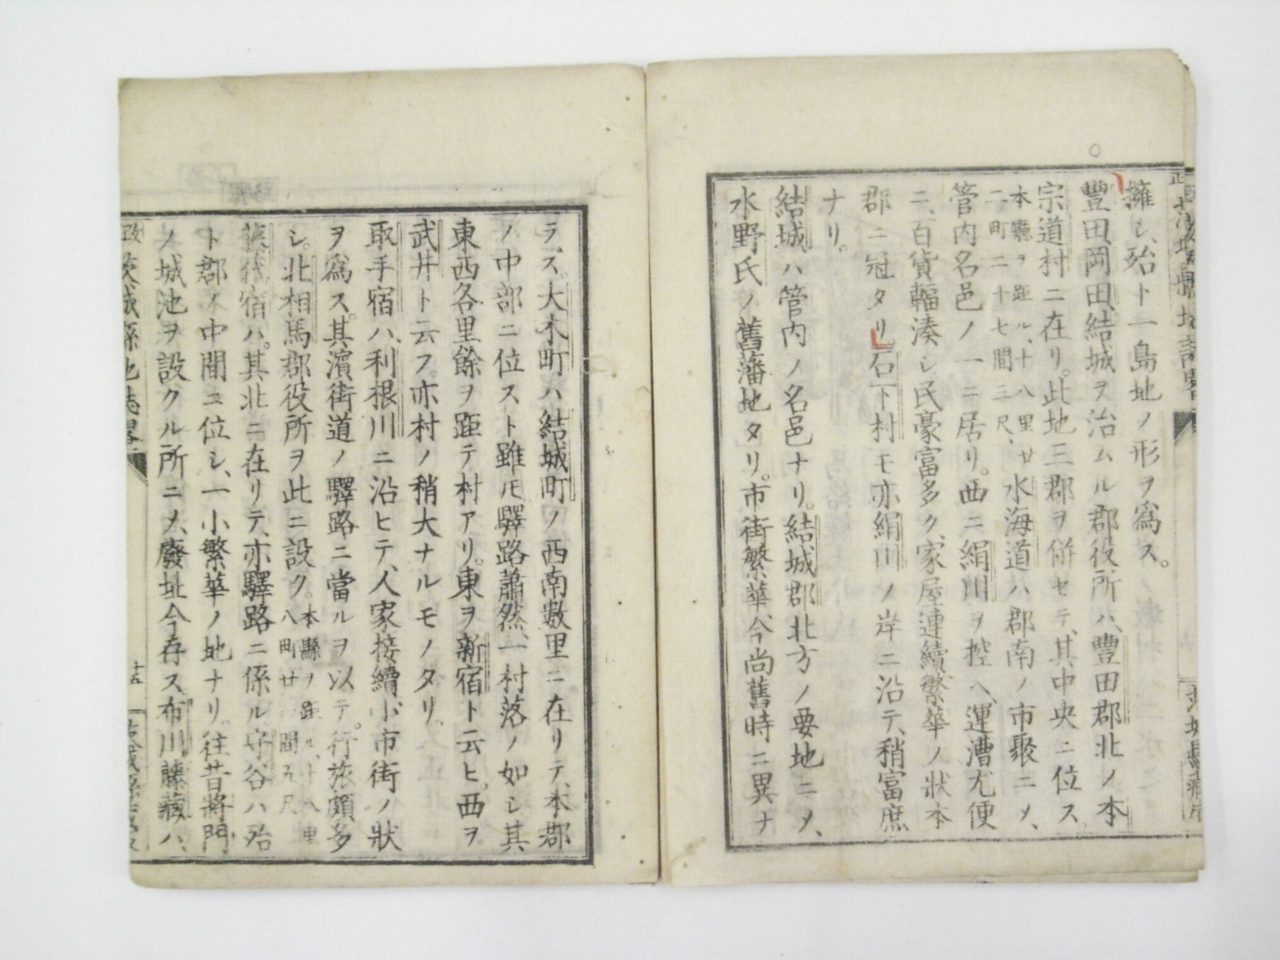 擁シ、殆ト一島地ノ形ヲ為ス。
豐田岡田結城ヲ治ムル郡役所ハ、豐田郡北ノ本
宗道村ニ在リ。本廳ヲ距ル、十八里廿
二町二十七間三尺、此地三郡ヲ併セテ、其中央ニ位ス
水海道ハ郡南ノ市聚ニメ、
管内名邑ノ一ニ居リ。西ニ絹川ヲ控ヘ、運漕尤便
ニ、百貨輻湊シ民豪富多ク、家屋連續繁華ノ狀本
郡ニ冠タリ。石下村モ亦絹川ノ岸ニ沿テ、稍富庶
ナリ。
結城ハ管内ノ名邑ナリ。結城郡北方ノ要地ニメ、
水野氏ノ舊藩地タリ。市街繁華、今尚舊時ニ異ナ
ラス。大木町ハ結城町ノ西南數里ニ在リテ、本郡
ノ中部ニ位スト雖𪜈驛路蕭然、一村落ノ如シ其
東西各里餘ヲ距テ村アリ。東ヲ新宿ト云ヒ、西ヲ
武井ト云フ。亦村ノ稍大ナルモノタリ。
取手宿ハ、利根川ニ沿ヒテ、人家接續シ、市街ノ狀
ヲ為ス。其濱街道ノ驛路ニ當ルヲ以テ。行旅頗多
シ。北相馬郡役所ヲ此ニ設ク。本縣ヲ距ル、十八里
八町廿二間五尺
宿ハ。其北ニ在リテ、亦驛路ニ係ル守谷ハ殆
ト郡ノ中間ニ位シ、一小繁華ノ地ナリ。往昔將門
ノ城池ヲ設クル所ニメ、廢址今存ス。布川藤藏ハ、
茨城縣地誌畧
十五